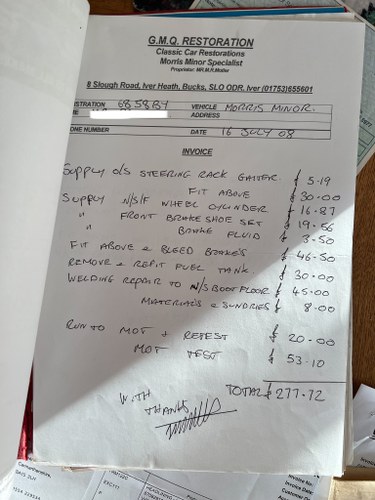 G.M.Q. RESTORATION
Classic Car Restorations
Morris Minor Specialist
Proprietor: MR.M.R.Maller
8 Slough Road, Iver Heath, Bucks, SLO ODR, Iver (01753)655601
ISTRATION 685 8BY VEHICLE MORRIS MINOR.
ADDRESS
ONE NUMBER DATE 16 JULY 08
INVOICE
SUPPLY O/S STEERING RACK GAITER. £ 5.19
FIT ABOVE £ 30.00
SUPPLY N/S/F WHEEL CYLINDER £ 16.87
" FRONT BRAKE SHOE SET £ 19.56
" BRAKE FLUID £ 3.50
FIT ABOVE & BLEED BRAKES £ 46.50
REMOVE & REFIT FUEL TANK. £ 30.00
WELDING REPAIR TO N/S BOOT FLOOR £ 45.00
MATERIALS & SUNDRIES £ 8.00
RUN TO MOT & RETEST £ 20.00
MOT TEST £ 53.10
TOTAL £ 277.72
WITH
THANKS
Invoice No:
Invoice Da
Customer